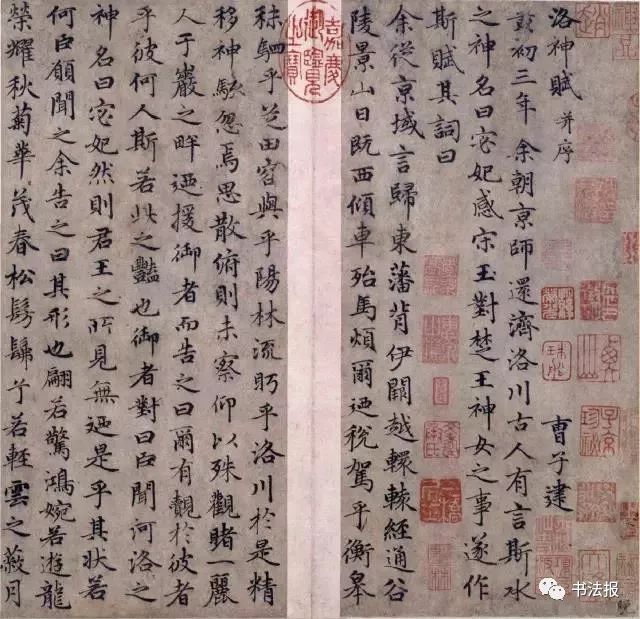 洛神賦 并序 曹子建
黃初三年余朝京師還濟洛川古人有言斯水
之神名曰宓妃感宋玉對楚王神女之事遂作
斯賦其詞曰
余從京域言歸東藩背伊闕越轘轅經通谷
陵景山日既西傾車殆馬煩爾迺稅駕乎衡皋
秣駟乎芝田容與乎陽林流眄乎洛川於是精
移神駭忽焉思散俯則未察仰以殊觀睹一麗
人于巖之畔迺援御者而告之曰爾有覿於彼者
乎彼何人斯若此之豔也御者對曰臣聞河洛之
神名曰宓妃然則君王之所見無迺是乎其狀若
何臣願聞之余告之曰其形也翩若驚鴻婉若遊龍
榮耀秋菊華茂春松髣髴兮若輕雲之蔽月
嘉慶御覽之寶
子京
书法报